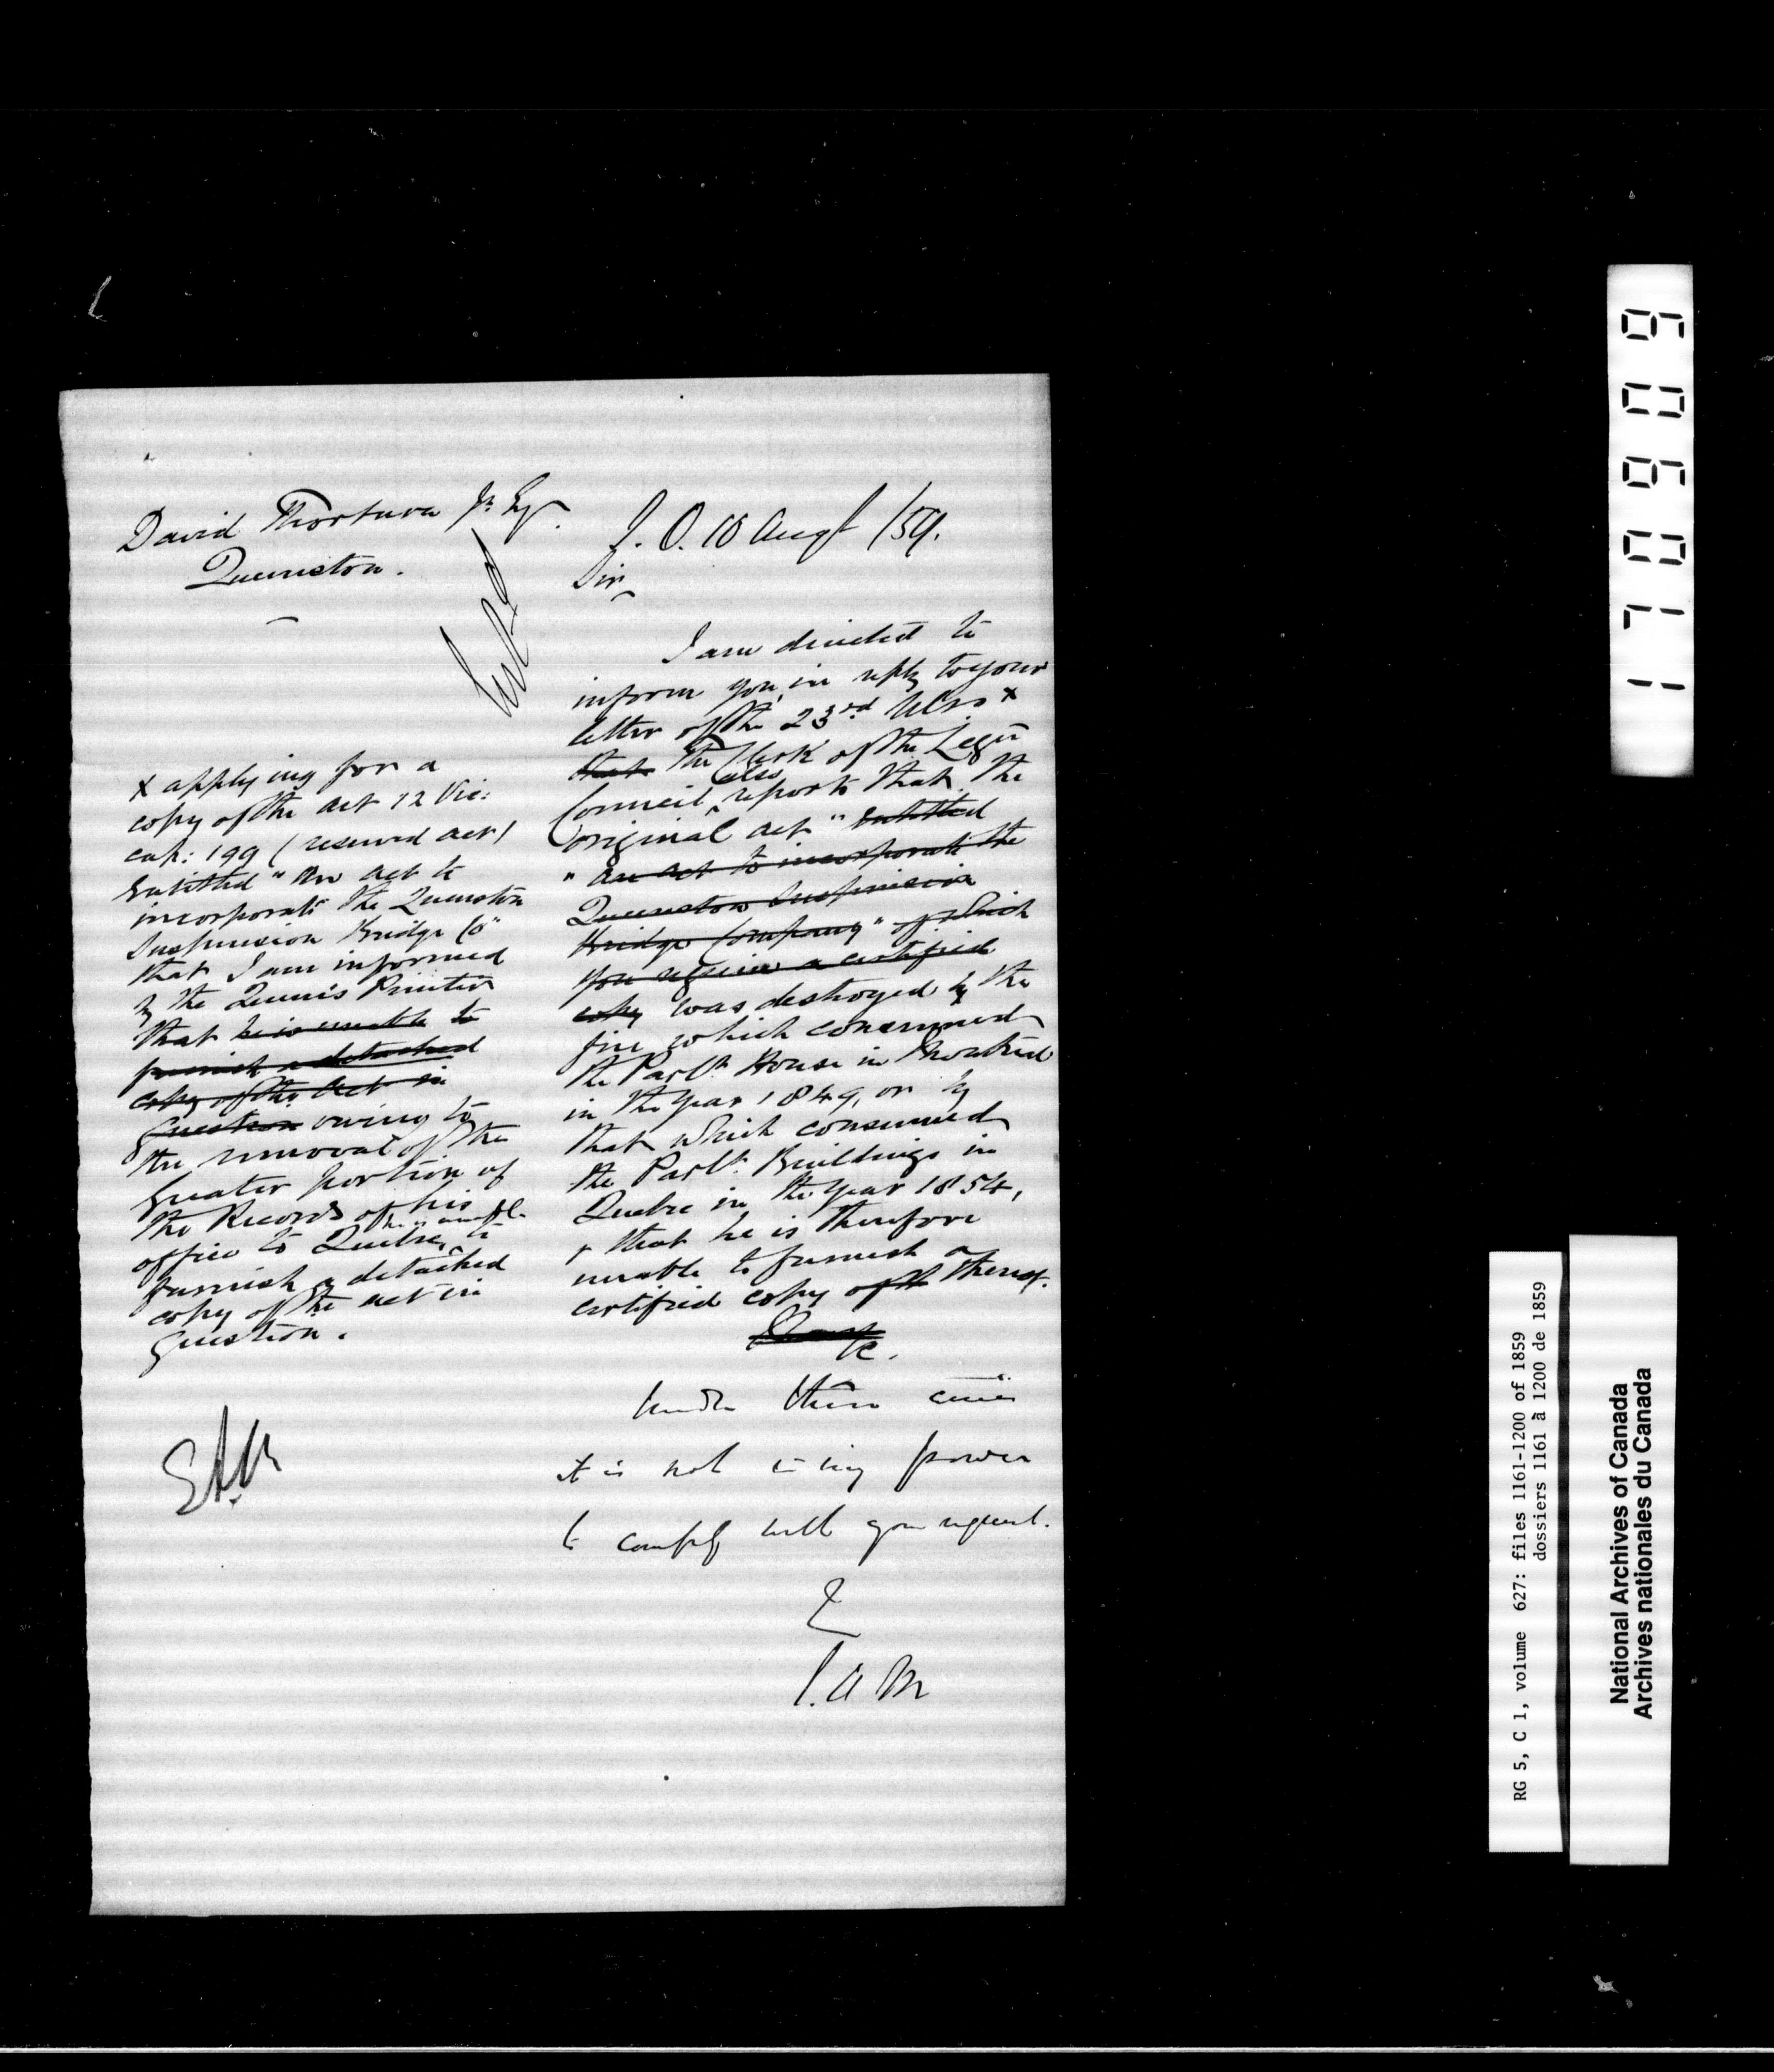 David Thorburn Jr. Esqr.
Queenston.
S. O. 10 Augt /59.
Sir
I am directed to
inform you, in reply to your
letter of the 23rd Ulto x
that the Clerk of the Legis
Council also reports that the
original act " entitled
" an act to incorporate the
Queenston Suspension
Bridge Company" of which
you require a certified
copy was destroyed by the
fire which consumed
the Parlt. House in Montreal
in the year 1849, or by
that which consumed
the Parlt. Buildings in
Quebec in the year 1854,
& that he is therefore
unable to furnish a
certified copy of th thereof.
&c.
Under these circes
it is not in my power
to comply with your request.
&
E. A. M
x applying for a
copy of the act 12 Vic:
cap: 199 (reserved act)
Entitled "An act to
incorporate the Queenston
Suspension Bridge Co"
that I am informed
by the Queen's Printer
that he is unable to
furnish a detached
copy of the act in
question owing to
the removal of the
Greater portion of
the Records of his
office to Quebec, he is unable to
furnish a detached
copy of the act in
question.
1 7 0 9 0 9
RG 5, C 1, volume 627: files 1161-1200 of 1859
dossiers 1161 à 1200 de 1859
National Archives of Canada
Archives nationales du Canada